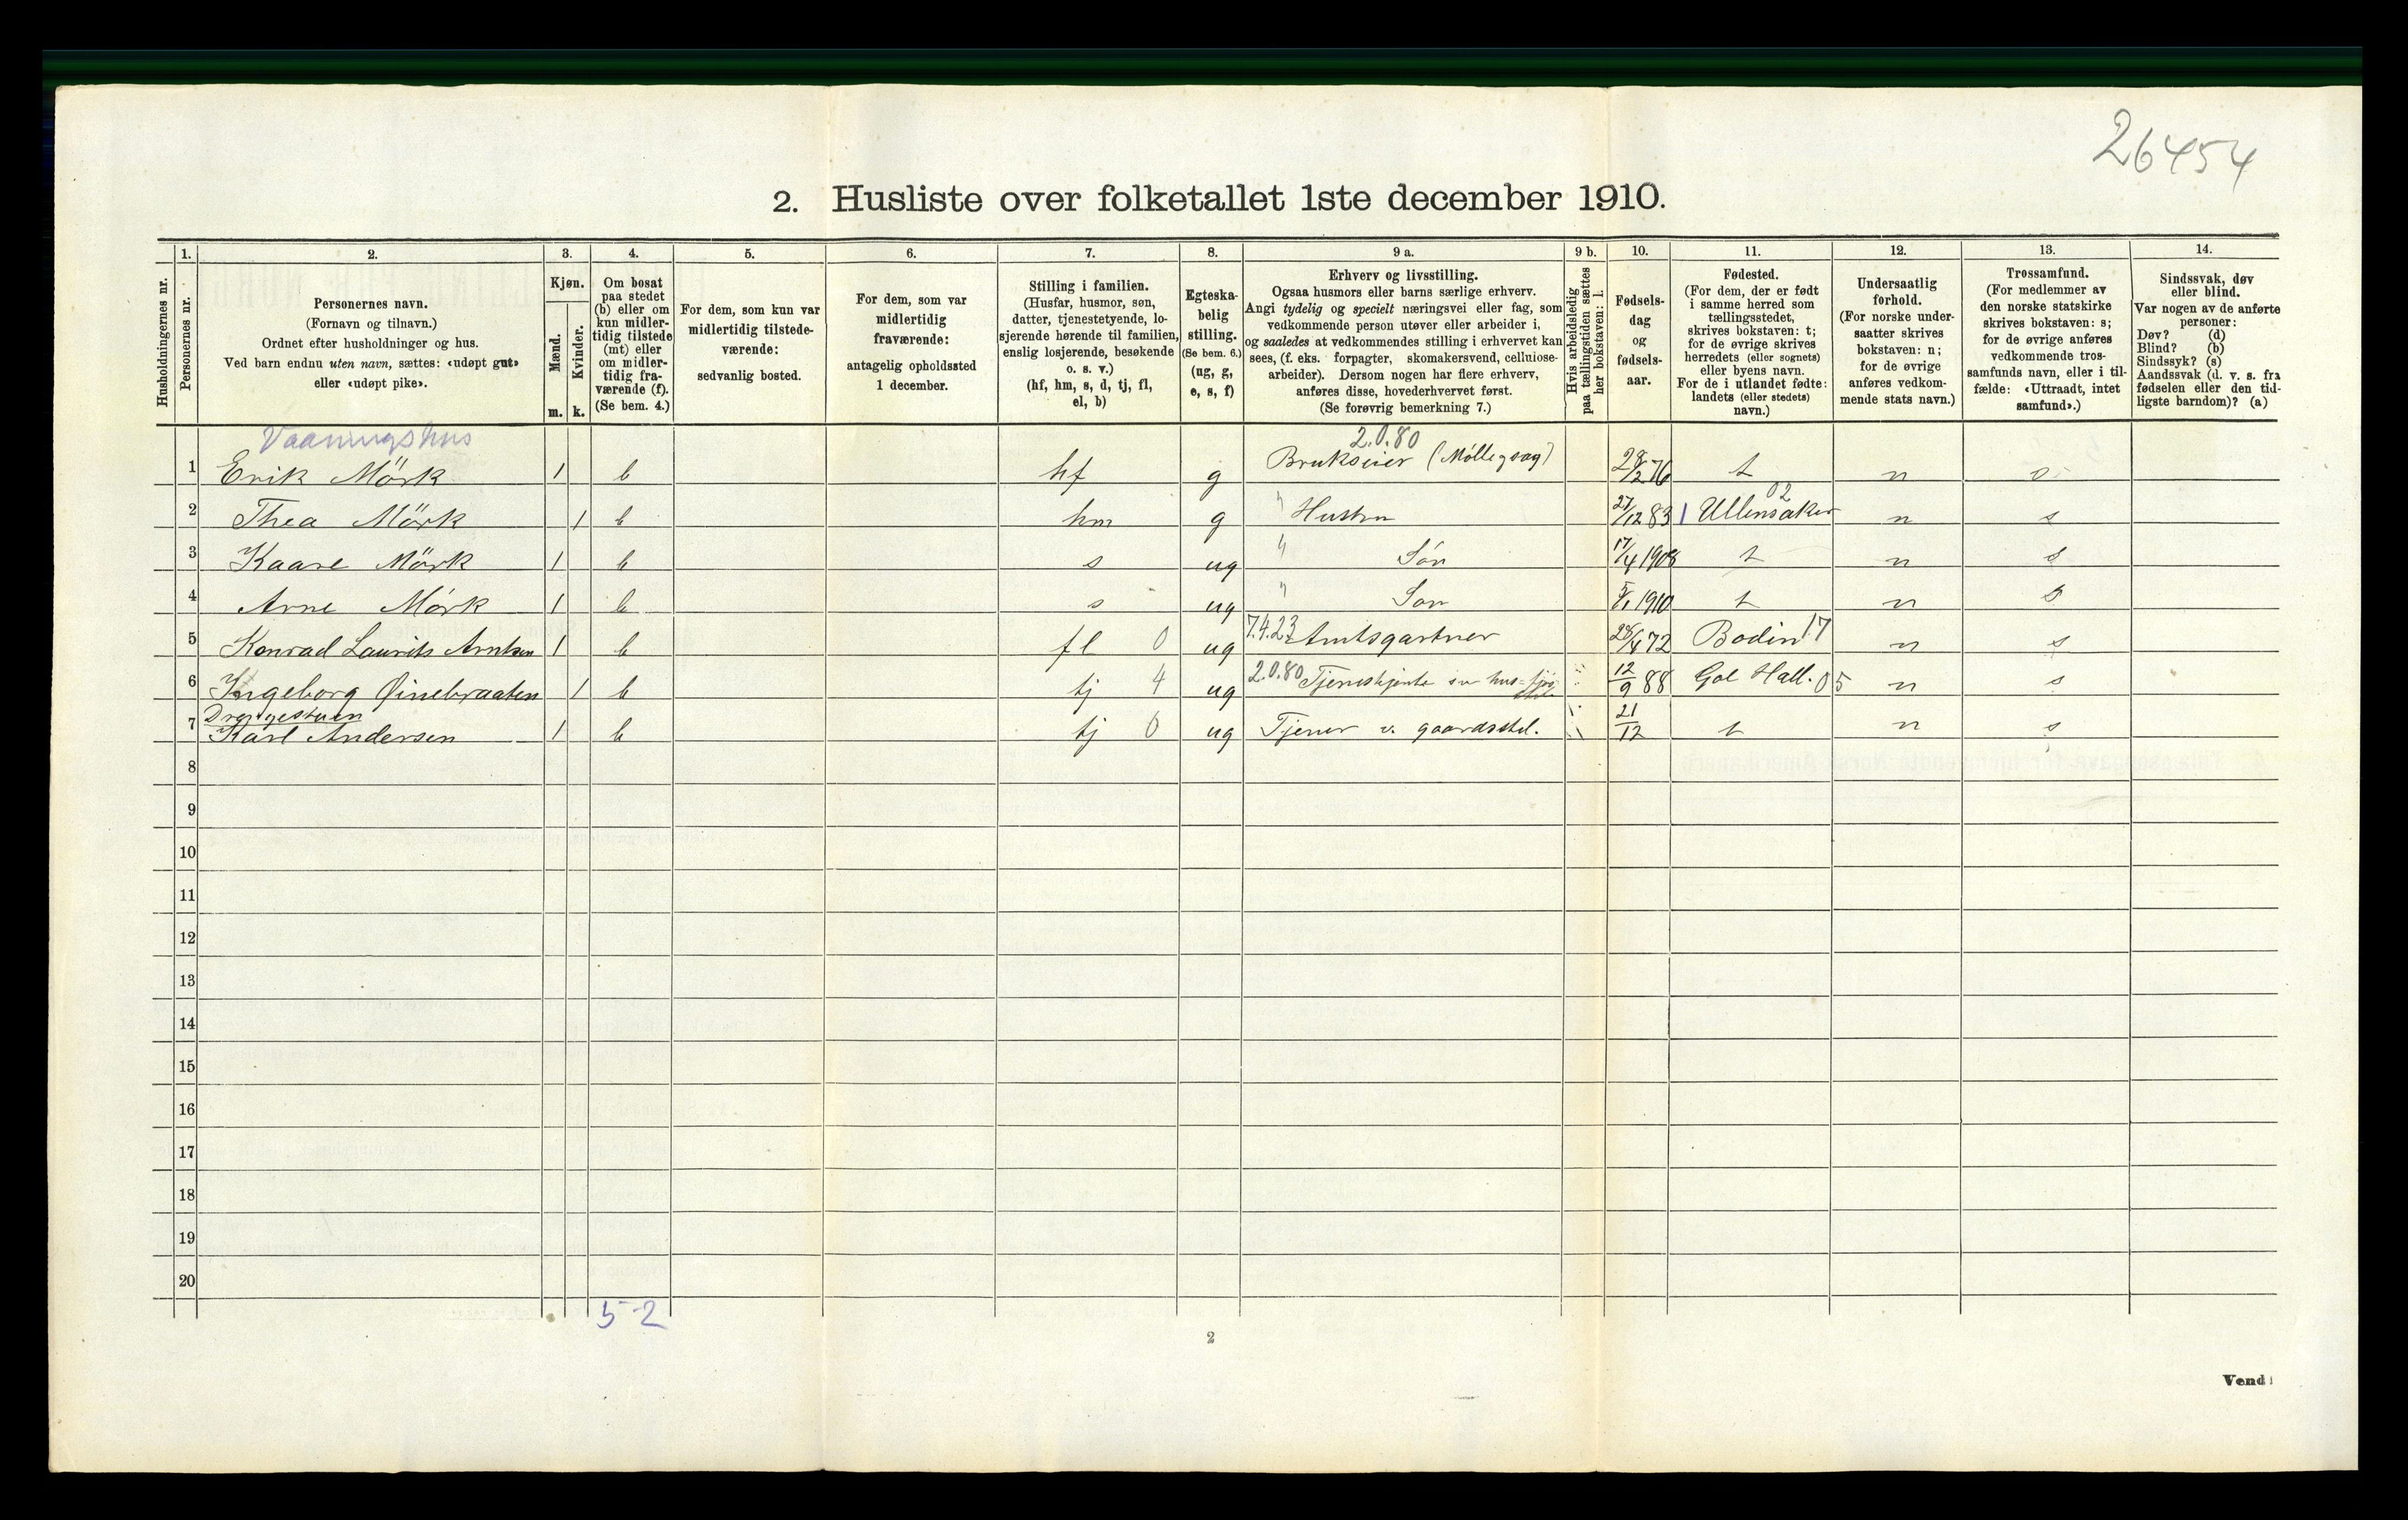 26454
2. Husliste over folketallet 1ste december 1910.
Husholdningernes nr.
1.
Personernes nr.
2.
Personernes navn.
(Fornavn og tilnavn.)
Ordnet efter husholdninger og hus.
Ved barn endnu uten navn, sættes: «udøpt gut»
eller «udøpt pike».
3.
Kjøn.
Mænd.
m.
Kvinder.
k.
4.
Om bosat
paa stedet
(b) eller om
kun midler-
tidig tilstede
(mt) eller
om midler-
tidig fra-
værende (f).
(Se bem. 4.)
5.
For dem, som kun var
midlertidig tilstede-
værende:
sedvanlig bosted.
6.
For dem, som var
midlertidig
fraværende:
antagelig opholdssted
1 december.
7.
Stilling i familien.
(Husfar, husmor, søn,
datter, tjenestetyende, lo-
sjerende hørende til familien,
enslig losjerende, besøkende
o. s. v.)
(hf, hm, s, d, tj, fl,
el, b)
8.
Egteska-
belig
stilling.
(Se bem. 6.)
(ug, g,
e, s, f)
9 a.
Erhverv og livsstilling.
Ogsaa husmors eller barns særlige erhverv.
Angi tydelig og specielt næringsvei eller fag, som
vedkommende person utøver eller arbeider i,
og saaledes at vedkommendes stilling i erhvervet kan
sees, (f. eks. forpagter, skomakersvend, cellulose-
arbeider). Dersom nogen har flere erhverv,
anføres disse, hovederhvervet først.
(Se forøvrig bemerkning 7.)
9 b.
Hvis arbeidsledig
paa tællingstiden sættes
her bokstaven: l.
10.
Fødsels-
dag
og
fødsels-
aar.
11.
Fødested.
(For dem, der er født
i samme herred som
tællingsstedet,
skrives bokstaven: t;
for de øvrige skrives
herredets (eller sognets)
eller byens navn.
For de i utlandet fødte:
landets (eller stedets)
navn.)
12.
Undersaatlig
forhold.
(For norske under-
saatter skrives
bokstaven: n;
for de øvrige
anføres vedkom-
mende stats navn.)
13.
Trossamfund.
(For medlemmer av
den norske statskirke
skrives bokstaven: s;
for de øvrige anføres
vedkommende tros-
samfunds navn, eller i til-
fælde: «Uttraadt, intet
samfund».)
14.
Sindssvak, døv
eller blind.
Var nogen av de anførte
personer:
Døv? (d)
Blind? (b)
Sindssyk? (s)
Aandssvak (d. v. s. fra
fødselen eller den tid-
ligste barndom)? (a)
Vaaningshus
2.0.80
1 Erik Mörk 1 b hf g Brukseier (Mølle, sag) 28/2 76 t n s
02
2 Thea Mörk 1 b hm g " Hustru 27/12 83 Ullensaker n s
3 Kaare Mörk 1 b s ug " Søn 17/4 1908 t n s
4 Arne Mörk 1 b s ug " Søn 5/1 1910 t n s
5 Konrad Laurits Arntsen 1 b fl 0 ug 7.4.23 Amtsgartner 28/4 72 Bodin 17 n s
6 Ingeborg Øinebraaten 1 b tj 4 ug 2.0.80 Tjenestejente 12/9 88 Gol Hall. 05 n s
Drengestuen
7 Karl Andersen 1 b tj 0 ug Tjener v. gaardsstel. 21/12 t n s
8
9
10
11
12
13
14
15
16
17
18
19
20
5-2
2
Vend!